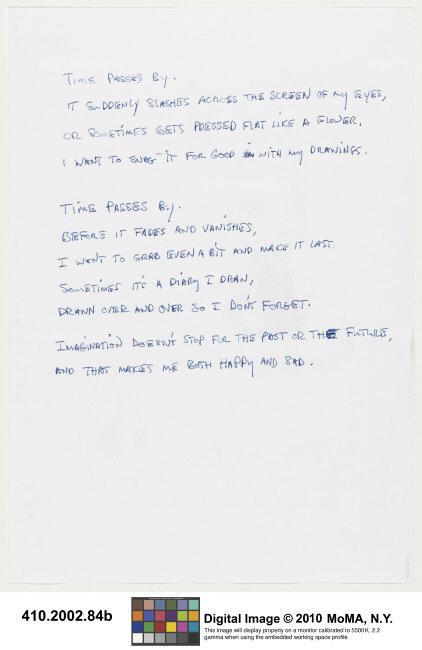 TIME PASSES BY.
IT SUDDENLY SLASHES ACROSS THE SCREEN OF MY EYES,
OR SOMETIMES GETS PRESSED FLAT LIKE A FLOWER.
I WANT TO SNAG IT FOR GOOD WITH MY DRAWINGS.
TIME PASSES BY.
BEFORE IT FADES AND VANISHES,
I WANT TO GRAB EVEN A BIT AND MAKE IT LAST.
SOMETIMES IT'S A DIARY I DRAW,
DRAWN OVER AND OVER SO I DON'T FORGET.
IMAGINATION DOESN'T STOP FOR THE PAST OR THE FUTURE,
AND THAT MAKES ME BOTH HAPPY AND SAD.
410.2002.84b
Digital Image © 2010 MoMA, N.Y.
This image will display properly on a monitor calibrated to 5500K, 2.2
gamma when using the embedded working space profile